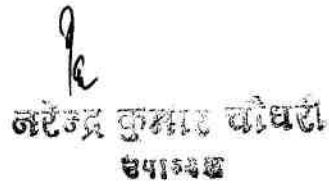 नरेन्द्र कुमार चौधरी
उपाध्यक्ष